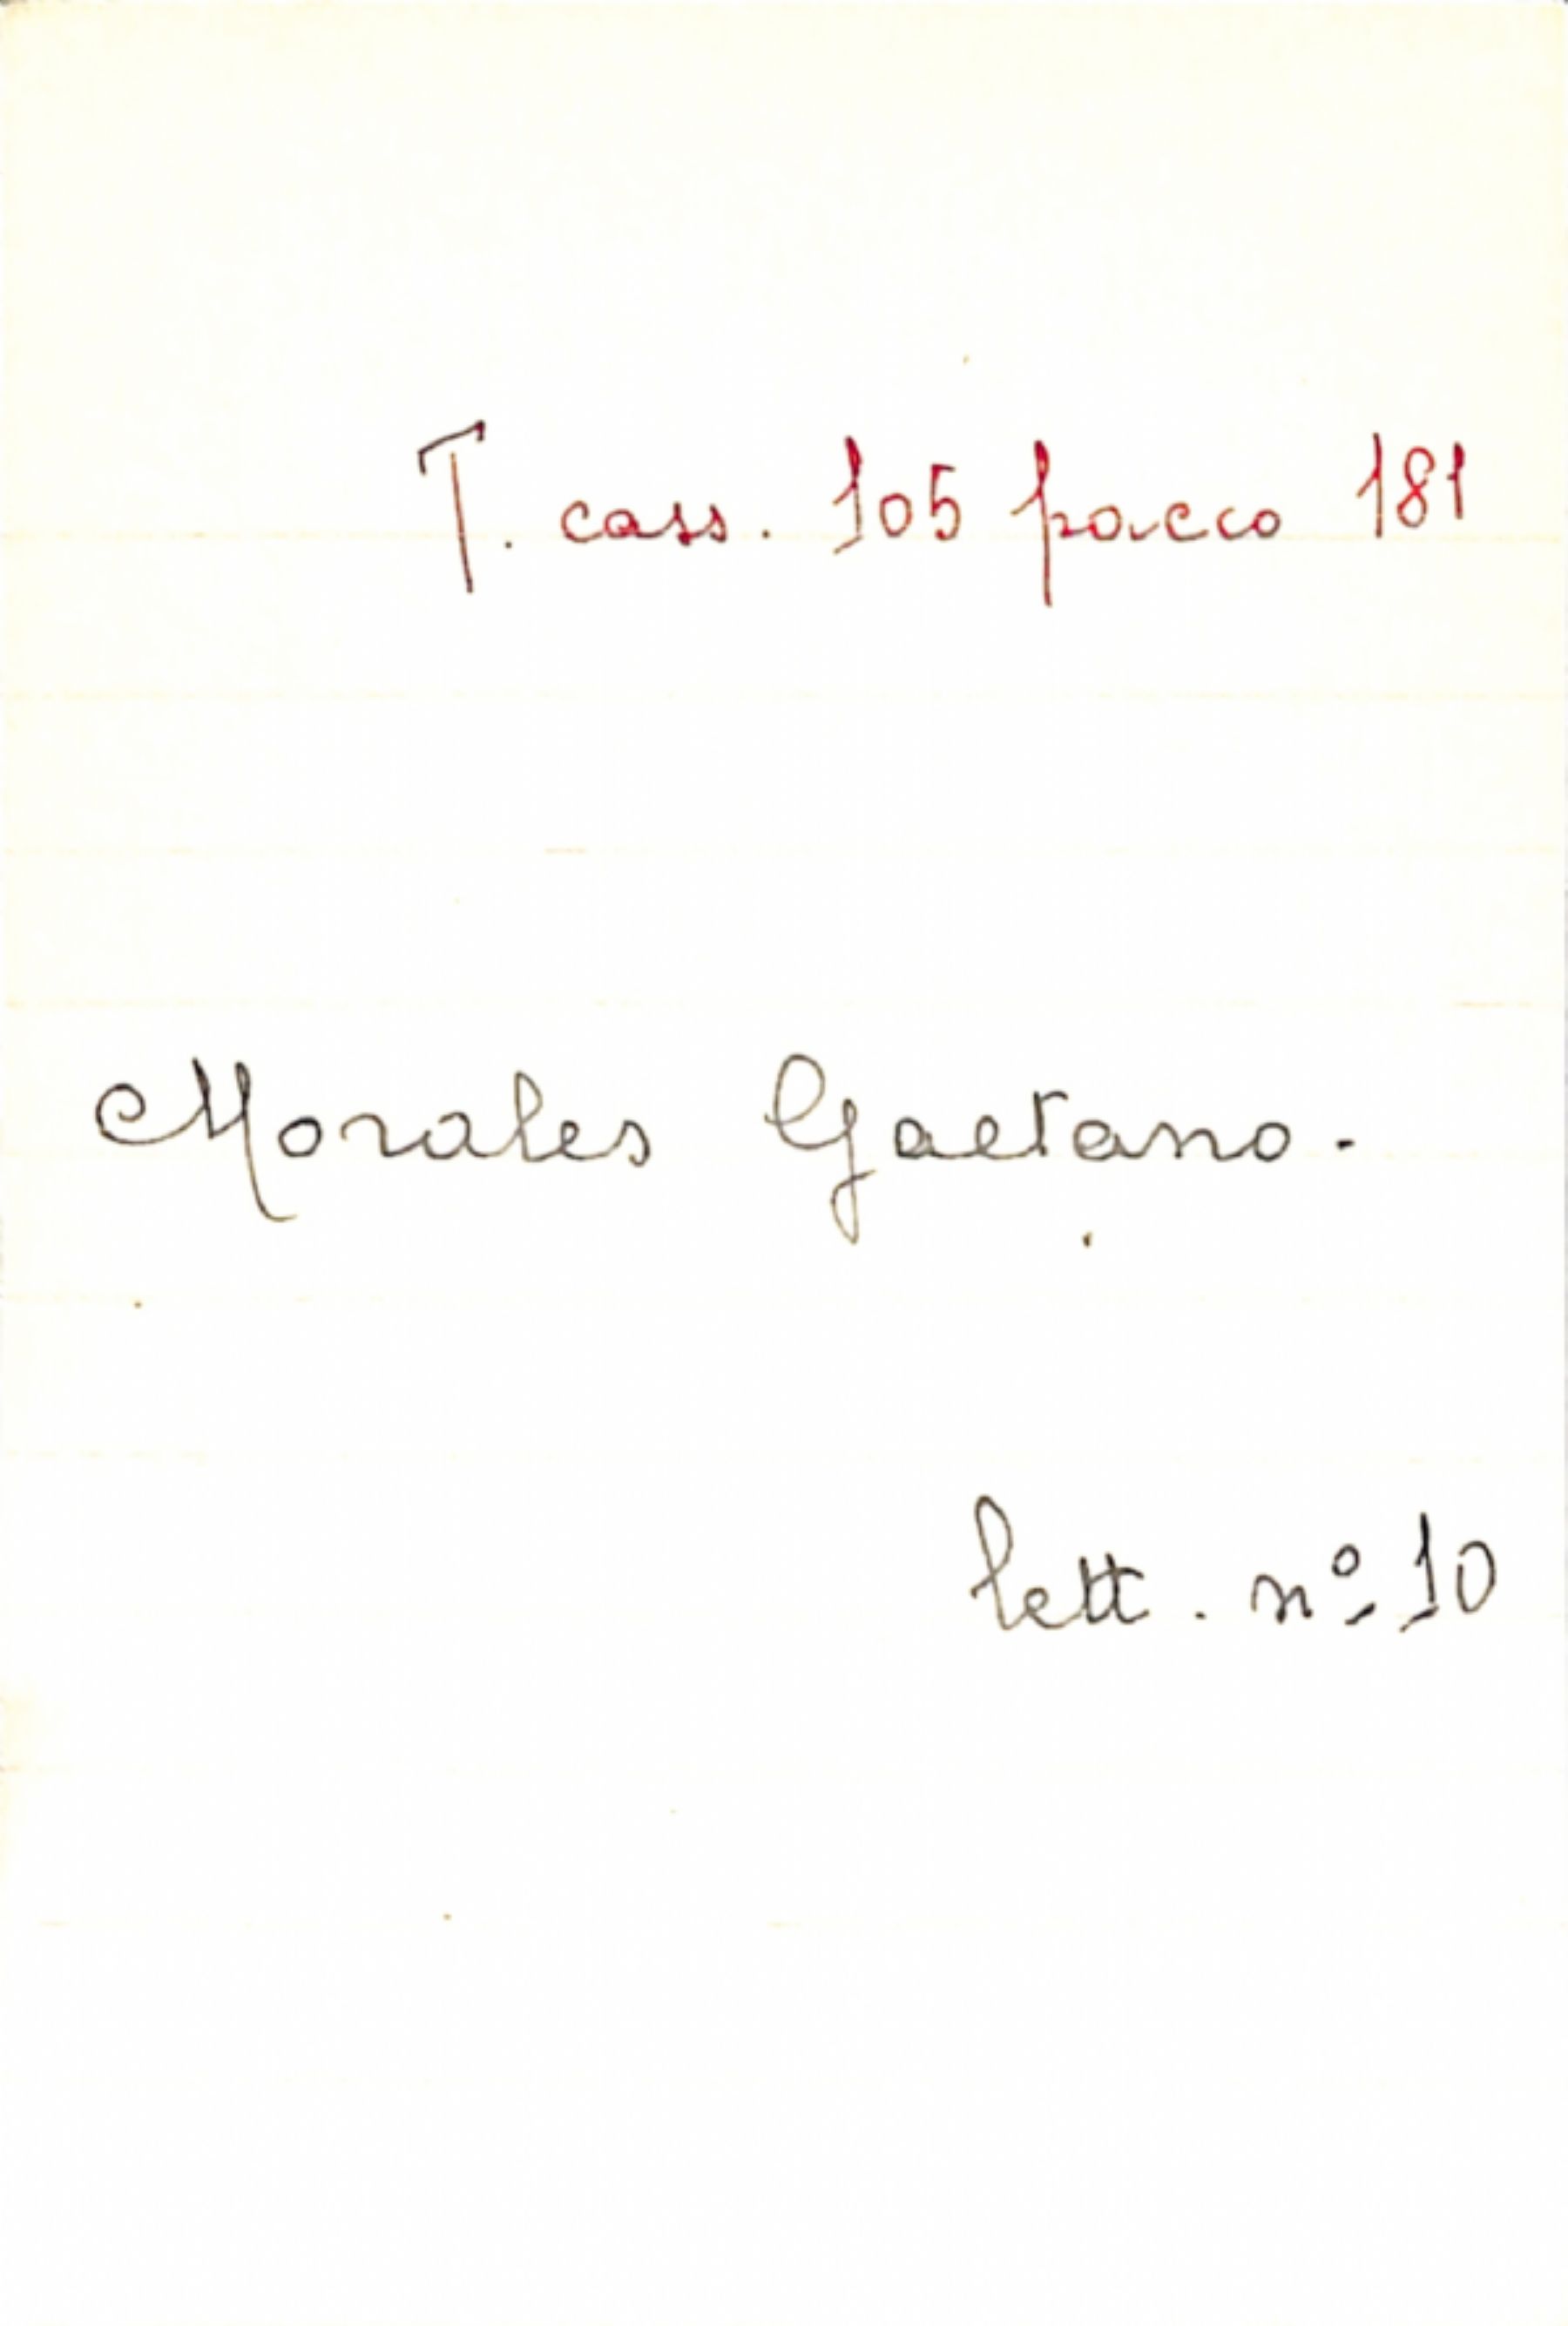 T. cass. 105 pacco 181
Morales Gaetano.
lett. nº 10